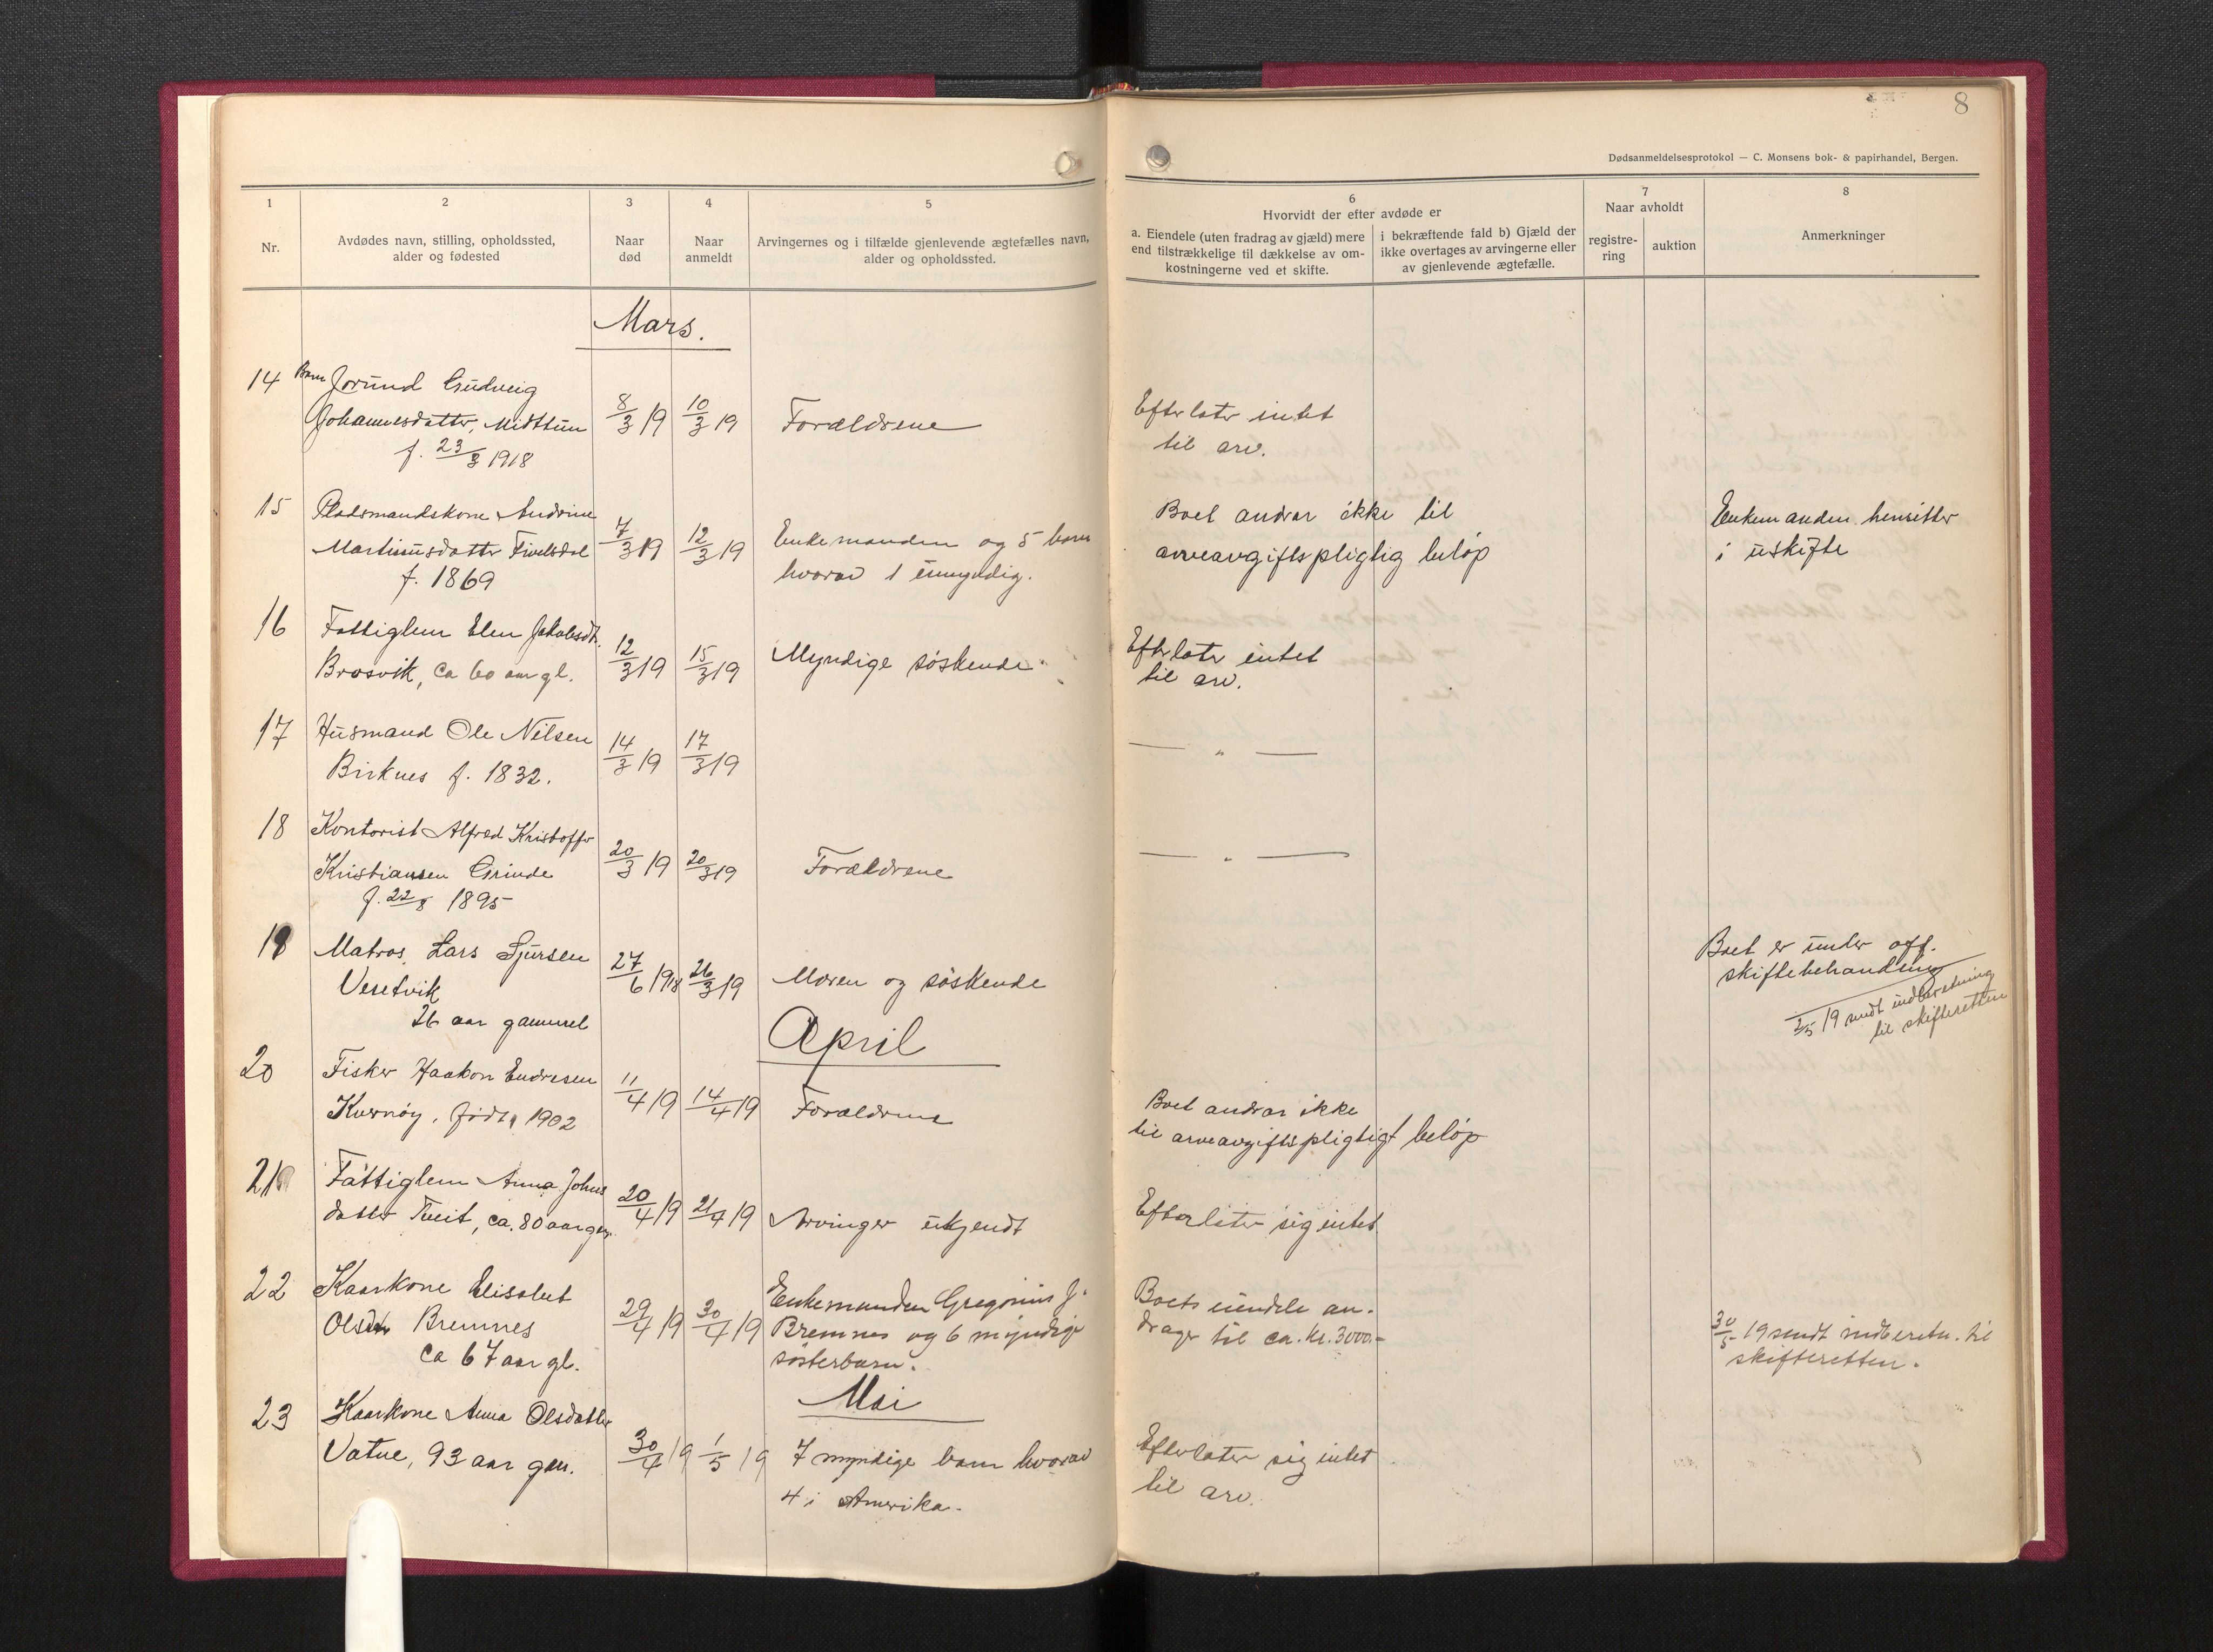 8
Dødsanmeldelsesprotokol — C. Monsens bok- & papirhandel, Bergen.
1
2
3
4
5
6
7
8
Nr.
Avdødes navn, stilling, opholdssted,
alder og fødested
Naar
død
Naar
anmeldt
Arvingernes og i tilfælde gjenlevende ægtefælles navn,
alder og opholdssted.
Hvorvidt der efter avdøde er
a. Eiendele (uten fradrag av gjæld) mere
end tilstrækkelige til dækkelse av om-
kostningerne ved et skifte.
i bekræftende fald b) Gjæld der
ikke overtages av arvingerne eller
av gjenlevende ægtefælle.
Naar avholdt
registre-
ring
auktion
Anmerkninger
Mars.
14 Barn Jorund Gudveig
Johannesdatter, Midttun 8/3 19 10/3 19 Forældrene
f. 23/3 1918
Efterlater intet
til arv.
15 Pladsmandskone Andrine
Martinusdatter Fivelsdal 7/3 19 12/3 19 Enkemanden og 5 barn
f. 1869 hvorav 1 umyndig.
Boet andrar ikke til
arveavgiftspligtig beløp
Enkemanden hensitter
i uskifte
16 Fattiglem Elen Jakobsdt.
Brosvik, ca 60 aar gl. 12/3 19 15/3 19 Myndige søskende.
Efterlater intet
til arv.
17 Husmand Ole Nilsen
Birknes f. 1832. 14/3 19 17/3 19
— " —
18 Kontorist Alfred Kristoffer
Kristiansen Grinde 20/3 19 20/3 19 Forældrene
f. 22/8 1895
— " —
19 Matros Lars Sjursen
Vesetvik 27/6 1918 26/3 19 Moren og søskende
26 aar gammel
Boet er under off.
skiftebehandling
2/5 19 sendt indberetning
til skifteretten
April
20 Fisker Haakon Endresen
Kvernøy, født 1902 11/4 19 14/4 19 Forældrene
Boet andrar ikke
til arveavgiftspligtigt beløp
21 Fattiglem Anna Johns
datter Tveit, ca. 80 aar gm. 20/4 19 21/4 19 Arvinger ukjendt
Efterlater sig intet
22 Kaarkone Elisabet
Olsdtr Bremnes 29/4 19 30/4 19
ca 67 aar gl.
Enkemanden Gregorius J.
Bremnes og 6 myndige
søsterbarn.
Boets eiendele an-
drager til ca. kr. 3000.-
30/5 19 sendt indberetn. til
skifteretten.
Mai
23 Kaarkone Anna Olsdatter
Vatne, 93 aar gm. 30/4 19 1/5 19 7 myndige barn hvorav
4 i Amerika.
Efterlater sig intet
til arv.